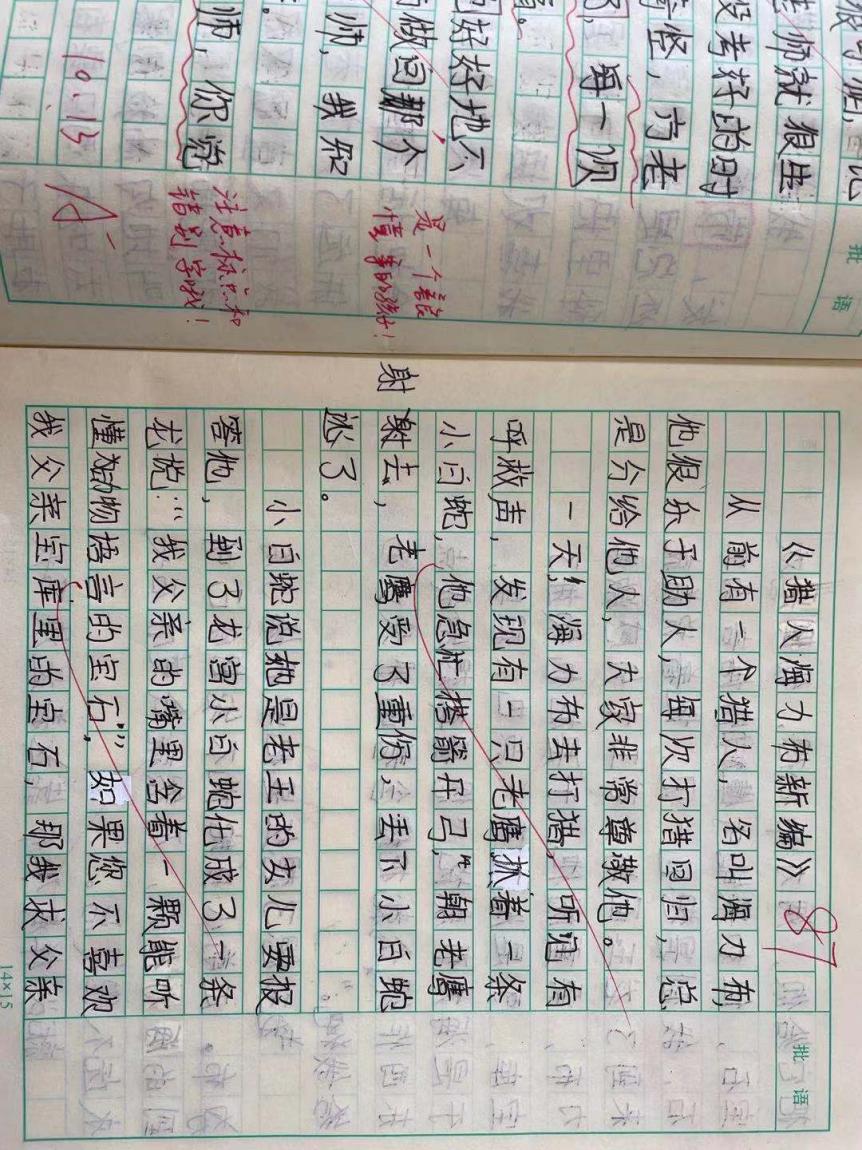 老师就很生
没考好的时
奇怪,方老
了,每一次
员。
好好地不
做回那个
师,我知
师,你说
10.15
批语
是一个善良
懂事的孩子!
注意标点和
错别字哦!
A-
《猎人海力布新编》
87
从前有一个猎人,名叫海力布,
他很乐于助人,每次打猎回归,总
是分给他人,大家非常尊敬他。
一天,海力布去打猎,听冠有
呼救声,发现有一只老鹰抓着一条
小白蛇,他急忙搭箭开弓,朝老鹰
射
射去,老鹰受了重伤,丢下小白蛇
逃了。
小白蛇说她是老王的女儿要报
答他,到了龙宫小白蛇化成了一条
龙说:“我父亲的嘴里含着一颗能听
懂动物语言的宝石”,如果您不喜欢
我父亲宝库里的宝石,那我求父亲
批语
14×15